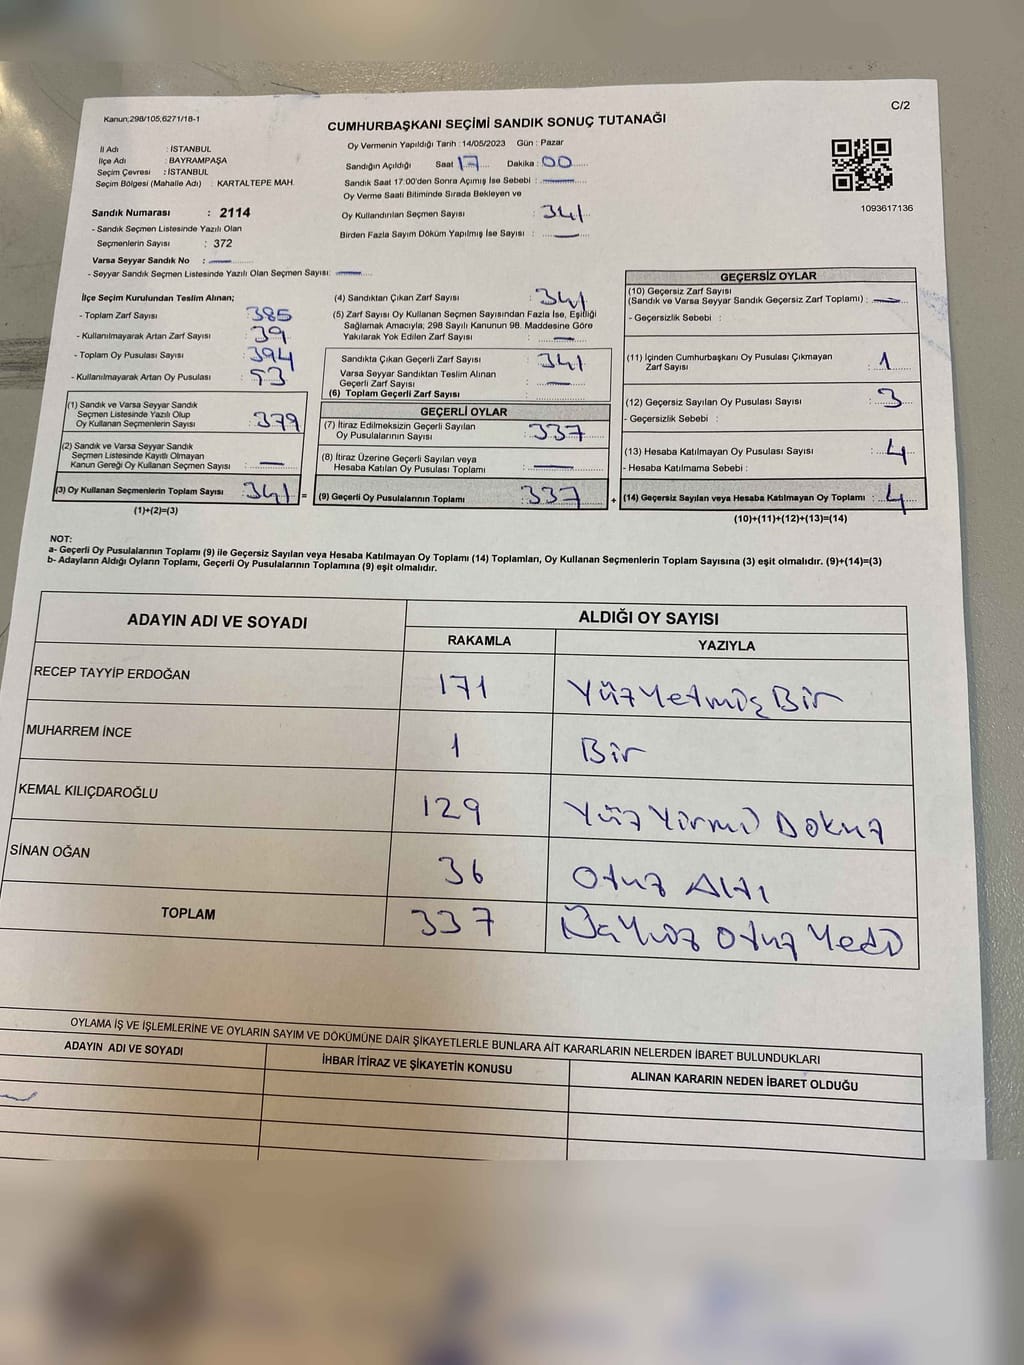 Kanun;298/105;6271/18-1
C/2
CUMHURBAŞKANI SEÇİMİ SANDIK SONUÇ TUTANAĞI
İl Adı : İSTANBUL
İlçe Adı : BAYRAMPAŞA
Seçim Çevresi : İSTANBUL
Seçim Bölgesi (Mahalle Adı) : KARTALTEPE MAH.
Sandık Numarası : 2114
- Sandık Seçmen Listesinde Yazılı Olan
Seçmenlerin Sayısı : 372
Varsa Seyyar Sandık No :
- Seyyar Sandık Seçmen Listesinde Yazılı Olan Seçmen Sayısı:
Oy Vermenin Yapıldığı Tarih : 14/05/2023 Gün : Pazar
Sandığın Açıldığı Saat 17 Dakika : 00
Sandık Saat 17:00'den Sonra Açımış İse Sebebi :
Oy Verme Saati Bitiminde Sırada Bekleyen ve
Oy Kullandırılan Seçmen Sayısı : 341
Birden Fazla Sayım Döküm Yapılmış İse Sayısı :
1093617136
İlçe Seçim Kurulundan Teslim Alınan;
- Toplam Zarf Sayısı : 385
- Kullanılmayarak Artan Zarf Sayısı : 39
- Toplam Oy Pusulası Sayısı : 394
- Kullanılmayarak Artan Oy Pusulası : 53
(1) Sandık ve Varsa Seyyar Sandık
Seçmen Listesinde Yazılı Olup
Oy Kullanan Seçmen Sayısı : 379
(2) Sandık ve Varsa Seyyar Sandık
Seçmen Listesinde Kayıtlı Olmayan
Kanun Gereği Oy Kullanan Seçmen Sayısı :
(3) Oy Kullanan Seçmenlerin Toplam Sayısı : 341 =
(1)+(2)=(3)
(4) Sandıktan Çıkan Zarf Sayısı : 341
(5) Zarf Sayısı Oy Kullanan Seçmen Sayısından Fazla İse, Eşitliği
Sağlamak Amacıyla; 298 Sayılı Kanunun 98. Maddesine Göre
Yakılarak Yok Edilen Zarf Sayısı :
Sandıkta Çıkan Geçerli Zarf Sayısı : 341
Varsa Seyyar Sandıktan Teslim Alınan
Geçerli Zarf Sayısı :
(6) Toplam Geçerli Zarf Sayısı :
GEÇERLİ OYLAR
(7) İtiraz Edilmeksizin Geçerli Sayılan
Oy Pusulalarının Sayısı : 337
(8) İtiraz Üzerine Geçerli Sayılan veya
Hesaba Katılan Oy Pusulası Toplamı :
(9) Geçerli Oy Pusulalarının Toplamı : 337 +
GEÇERSİZ OYLAR
(10) Geçersiz Zarf Sayısı
(Sandık ve Varsa Seyyar Sandık Geçersiz Zarf Toplamı) :
- Geçersizlik Sebebi :
(11) İçinden Cumhurbaşkanı Oy Pusulası Çıkmayan
Zarf Sayısı : 1
(12) Geçersiz Sayılan Oy Pusulası Sayısı : 3
- Geçersizlik Sebebi :
(13) Hesaba Katılmayan Oy Pusulası Sayısı : 4
- Hesaba Katılmama Sebebi :
(14) Geçersiz Sayılan veya Hesaba Katılmayan Oy Toplamı : 4
(10)+(11)+(12)+(13)=(14)
NOT:
a- Geçerli Oy Pusulalarının Toplamı (9) ile Geçersiz Sayılan veya Hesaba Katılmayan Oy Toplamı (14) Toplamları, Oy Kullanan Seçmenlerin Toplam Sayısına (3) eşit olmalıdır. (9)+(14)=(3)
b- Adayların Aldığı Oyların Toplamı, Geçerli Oy Pusulalarının Toplamına (9) eşit olmalıdır.
ADAYIN ADI VE SOYADI ALDIĞI OY SAYISI
RAKAMLA YAZIYLA
RECEP TAYYİP ERDOĞAN 171 Yüz Yetmiş Bir
MUHARREM İNCE 1 Bir
KEMAL KILIÇDAROĞLU 129 Yüz Yirmi Dokuz
SİNAN OĞAN 36 Otuz Altı
TOPLAM 337 Üçyüz Otuz Yedi
OYLAMA İŞ VE İŞLEMLERİNE VE OYLARIN SAYIM VE DÖKÜMÜNE DAİR ŞİKAYETLERLE BUNLARA AİT KARARLARIN NELERDEN İBARET BULUNDUKLARI
ADAYIN ADI VE SOYADI İHBAR İTİRAZ VE ŞİKAYETİN KONUSU ALINAN KARARIN NEDEN İBARET OLDUĞU